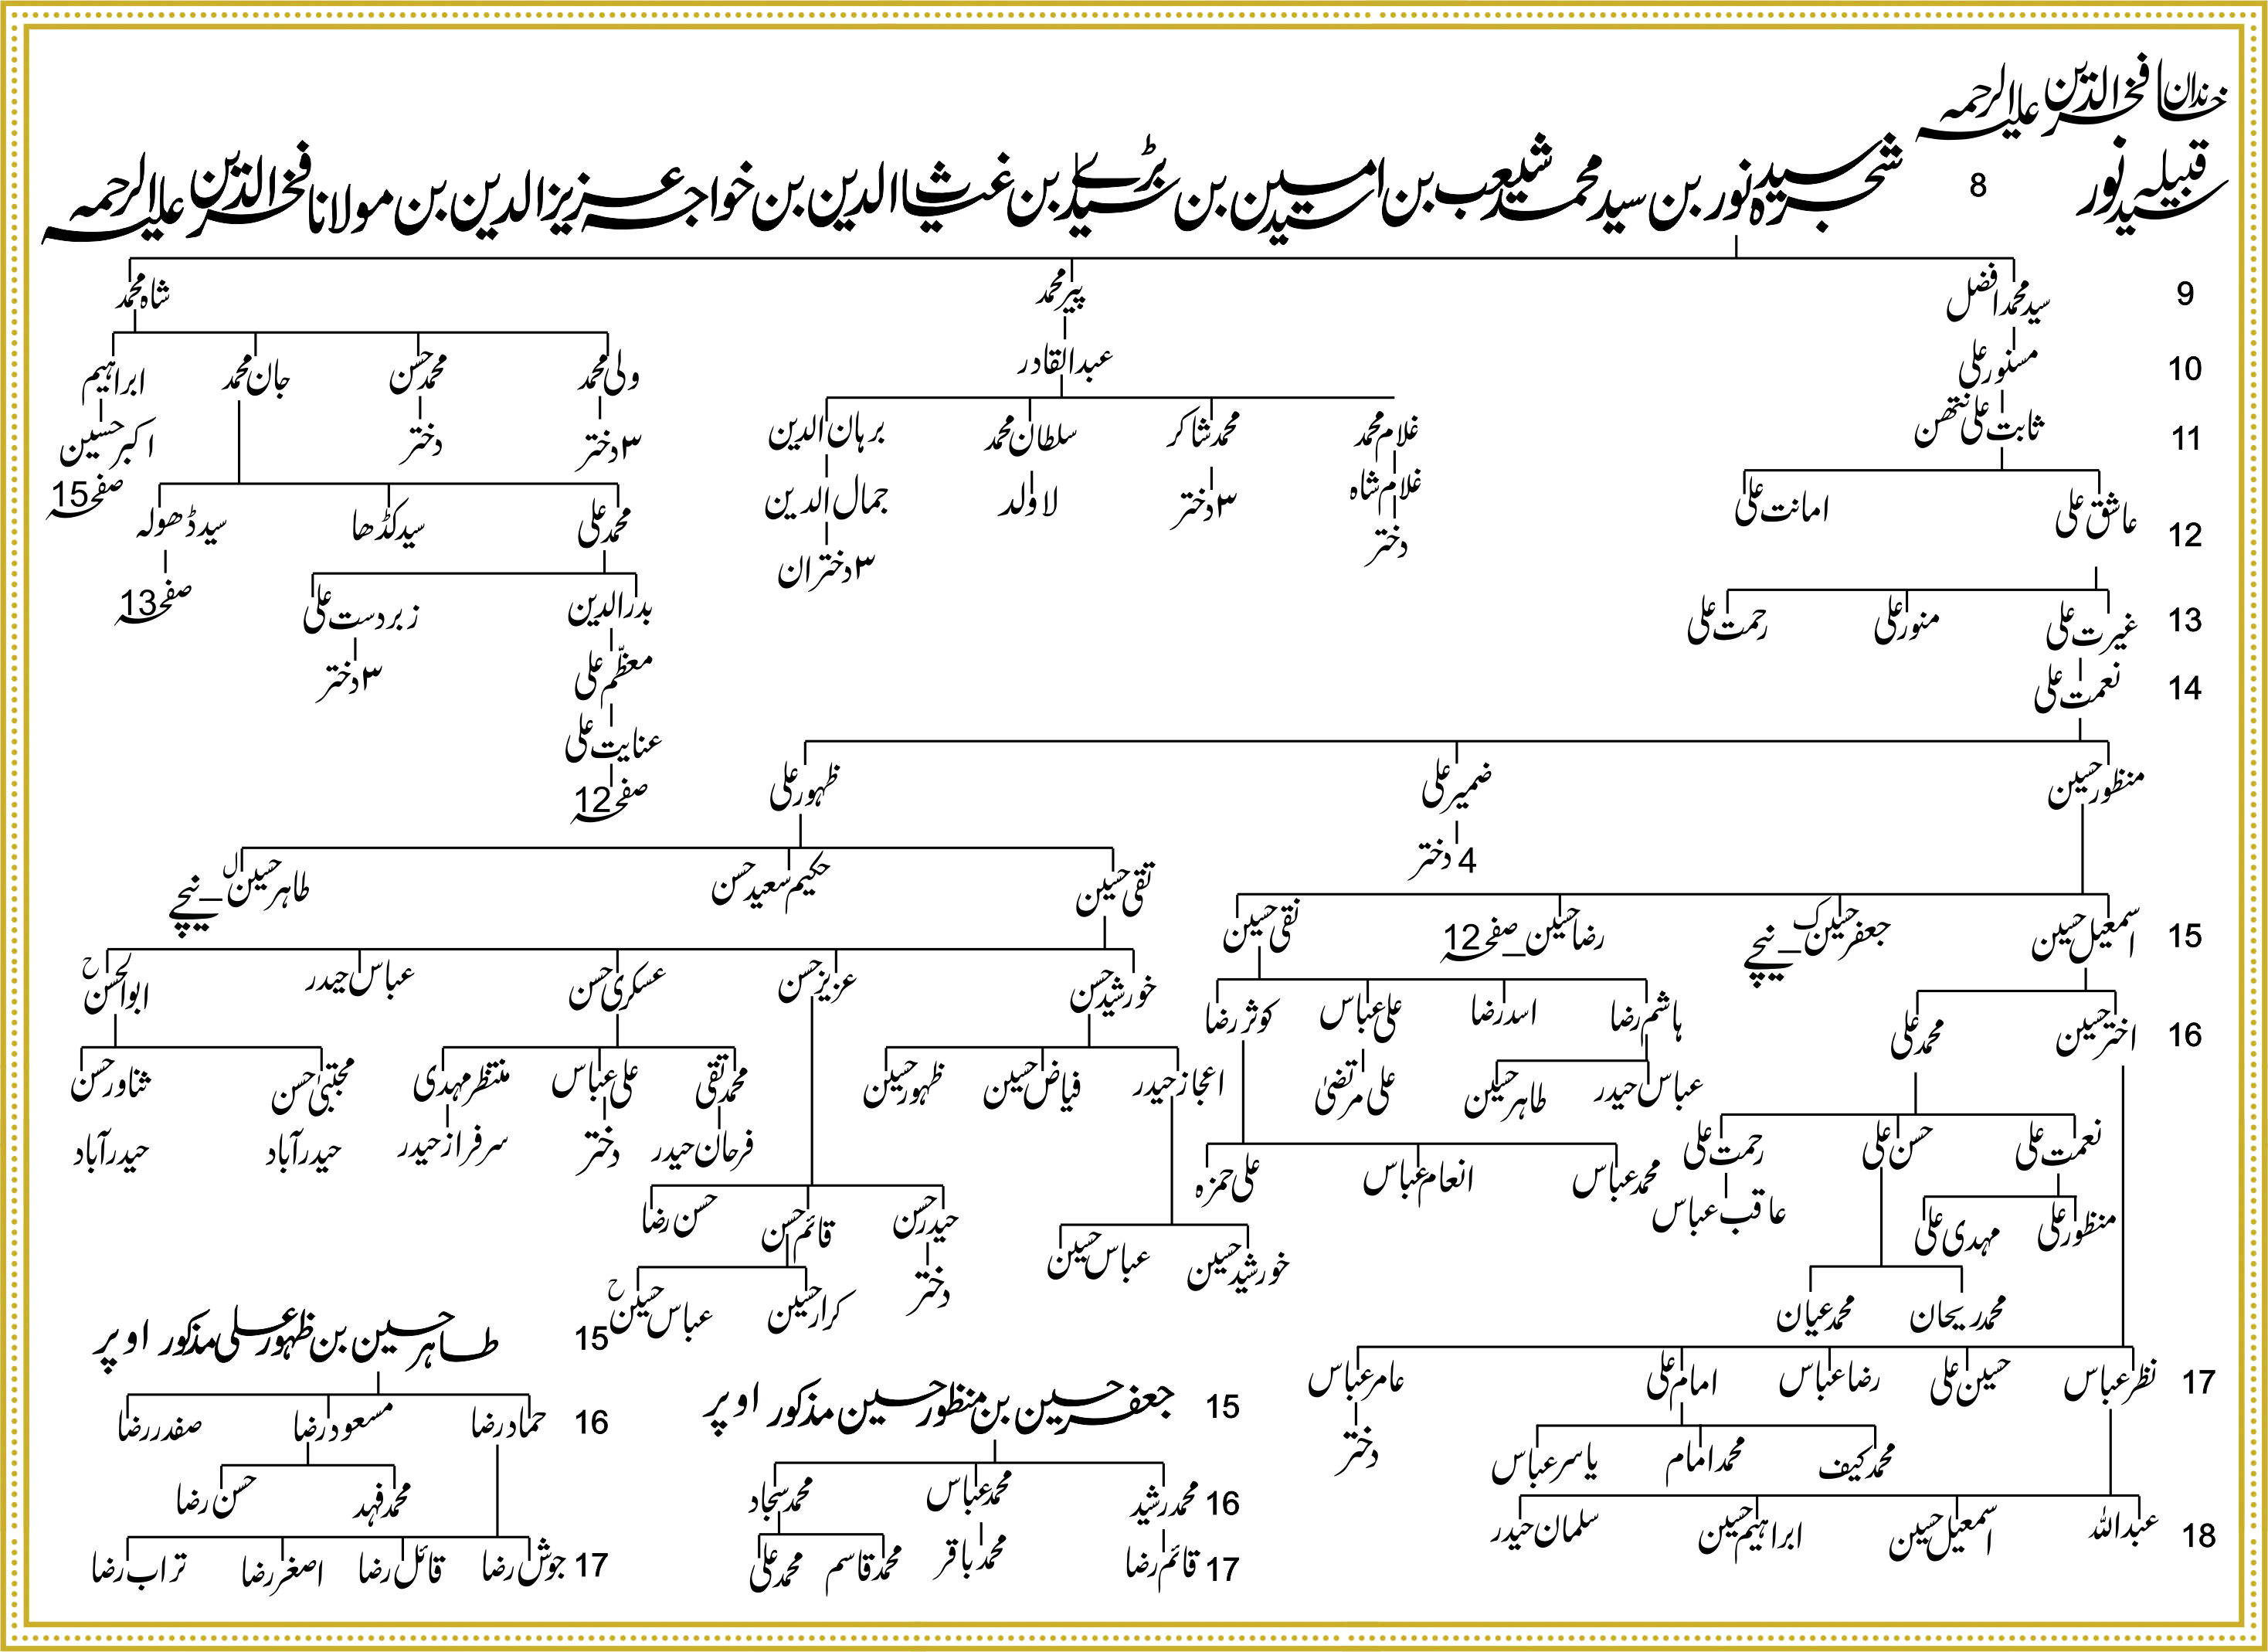 خاندان فخرالدین علیہ الرحمہ
قبیلہ سید نور
8 شجرہ سید نور بن سید محمد شعیب بن سید امین بن سید بڑے بن غیاث الدین بن خواجہ عزیز الدین بن مولانا فخرالدین علیہ الرحمہ
9 سید محمد افضل پیر محمد شاہ محمد
10 منور علی عبدالقادر ولی محمد محمد حسن جان محمد ابراہیم
11 ثابت علی نتھن غلام محمد محمد شاکر سلطان محمد برہان الدین ۳ دختر دختر اکبر حسین
غلام شاہ ۳ دختر لاولد جمال الدین صفحہ 15
12 عاشق علی امانت علی دختر ۳ دختران محمد علی سید کڈھا سید ڈھولہ
13 غیرت علی منور علی رحمت علی بدرالدین زبردست علی صفحہ 13
14 نعمت علی معظّم علی ۳ دختر
عنایت علی
صفحہ 12
منظور حسین ضمیر علی ظہور علی
4 دختر
تقی حسین حکیم سعید حسن طاہر حسین ل _ نیچے
15 اسمعیل حسین جعفر حسین ک _ نیچے رضا حسین _ صفحہ 12 نقی حسین
خورشید حسن عزیز حسن عسکری حسن عباس حیدر ابوالحسن ح
16 اختر حسین محمد علی ہاشم رضا اسد رضا علی عباس کوثر رضا
عباس حیدر طاہر حسین علی مرتضیٰ
اعجاز حیدر فیاض حسین ظہور حسین محمد تقی علی عباس منتظر مہدی مجتبیٰ حسن ثناور حسن
فرحان حیدر دختر سرفراز حیدر حیدرآباد حیدرآباد
نعمت علی حسن علی رحمت علی محمد عباس انعام عباس علی حمزہ
منظور علی مہدی علی عاقب عباس
حیدر حسن قائم حسن حسن رضا
خورشید حسین عباس حسین دختر
محمد ریحان محمد عیان کرار حسین عباس حسین ح
17 نظر عباس حسین علی رضا عباس امام علی عامر عباس
محمد کیف محمد امام یاسر عباس دختر
18 عبداللہ اسمعیل حسین ابراہیم حسین سلمان حیدر
15 جعفر حسین بن منظور حسین مذکور اوپر
16 محمد رشید محمد عباس محمد سجاد
17 قائم رضا محمد باقر محمد قاسم محمد علی
15 طاہر حسین بن ظہور علی مذکور اوپر
16 حماد رضا مسعود رضا صفدر رضا
محمد فہد حسن رضا
17 جوش رضا قائل رضا اصغر رضا تراب رضا